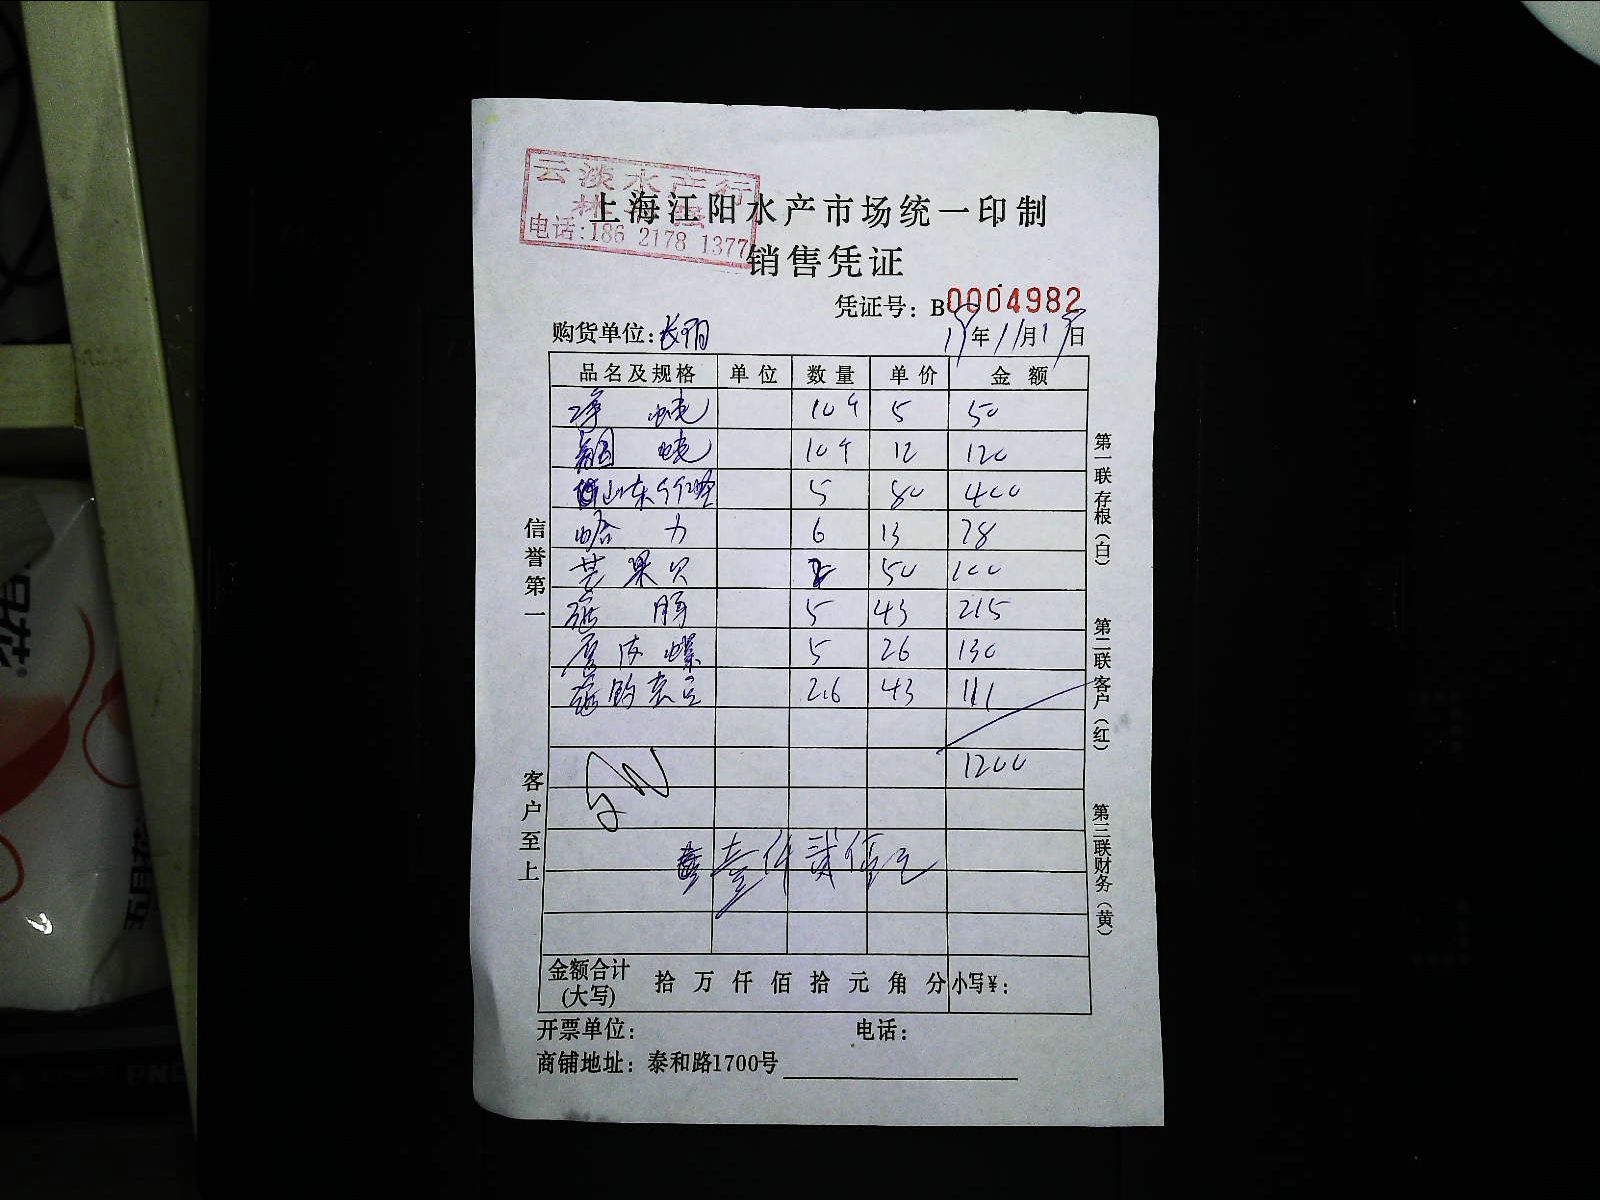 云淡水产行
电话:186 2178 1377
上海江阳水产市场统一印制
销售凭证
凭证号: B0004982
购货单位:
年11月 日
品名及规格 单位 数量 单价 金额
10个 5 50
10个 12 120
山东 5 80 400
哈 力 6 13 78
芒果贝 2 50 100
5 43 215
皮螺 5 26 130
2.6 43 111
1200
壹仟贰佰元
金额合计(大写) 拾 万 仟 佰 拾 元 角 分 小写¥:
开票单位: 电话:
商铺地址: 泰和路1700号
信誉第一
客户至上
第一联存根(白)
第二联客户(红)
第三联财务(黄)